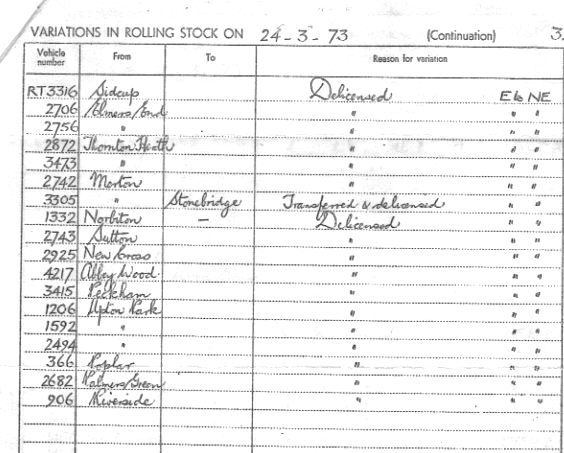 VARIATIONS IN ROLLING STOCK ON 24-3-73 (Continuation) 3.
Vehicle number From To Reason for variation
RT3316 Sidcup Delicensed E6 NE
2706 Elmers/End " " "
2756 " " " "
2872 Thornton Heath " " "
3473 " " " "
2742 Merton " " "
3305 " Stonebridge Transferred & delicensed " "
1332 Norbiton — Delicensed " "
2743 Sutton " " "
2925 New Cross " " "
4217 Abbey Wood " " "
3415 Peckham " " "
1206 Upton Park " " "
1592 " " " "
2494 " " " "
366 Poplar " " "
2682 Palmers/Green " " "
906 Riverside " " "